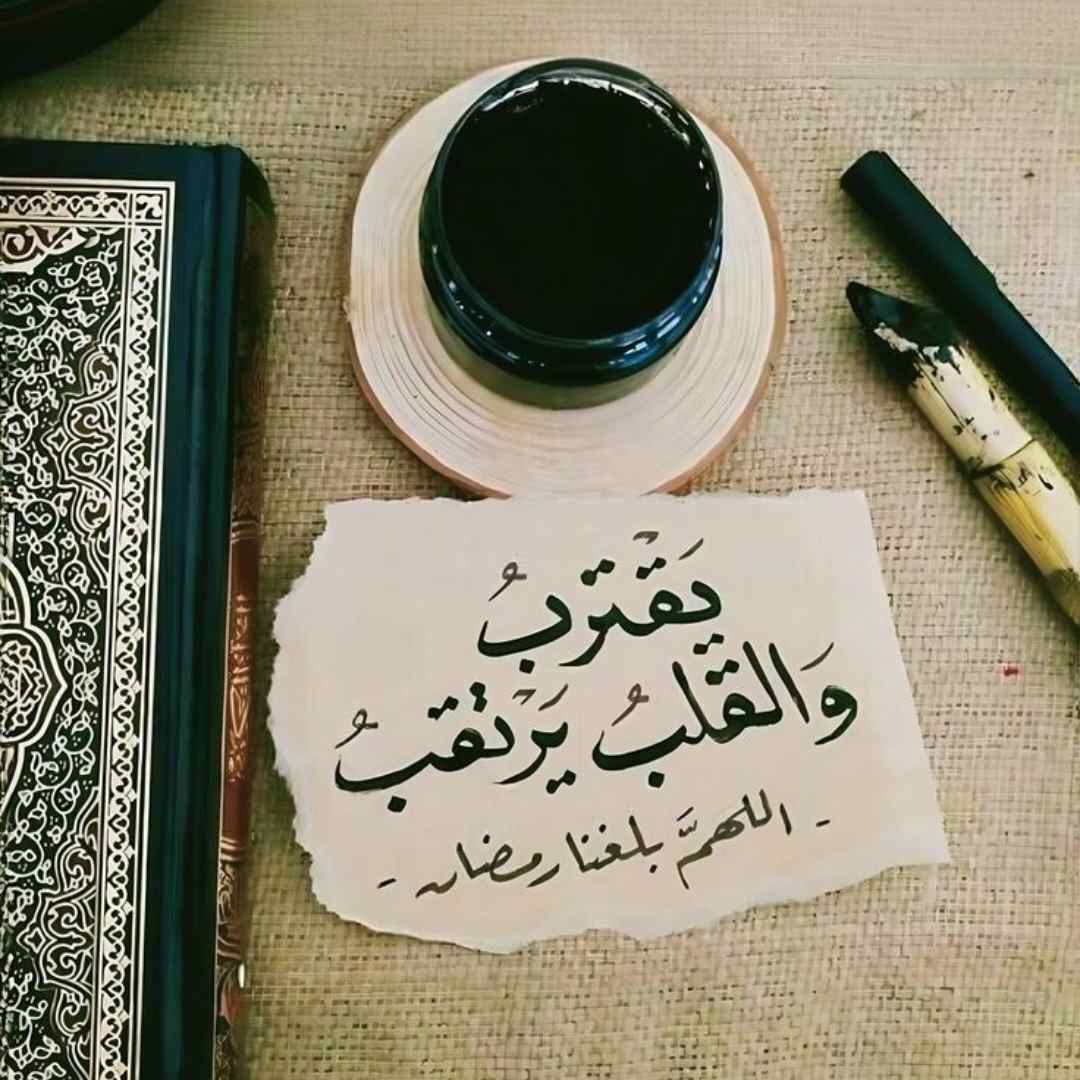 يَقْتربُ
وَالقلبُ يَرْتقبُ
- اللهمَّ بلغنا رمضان -